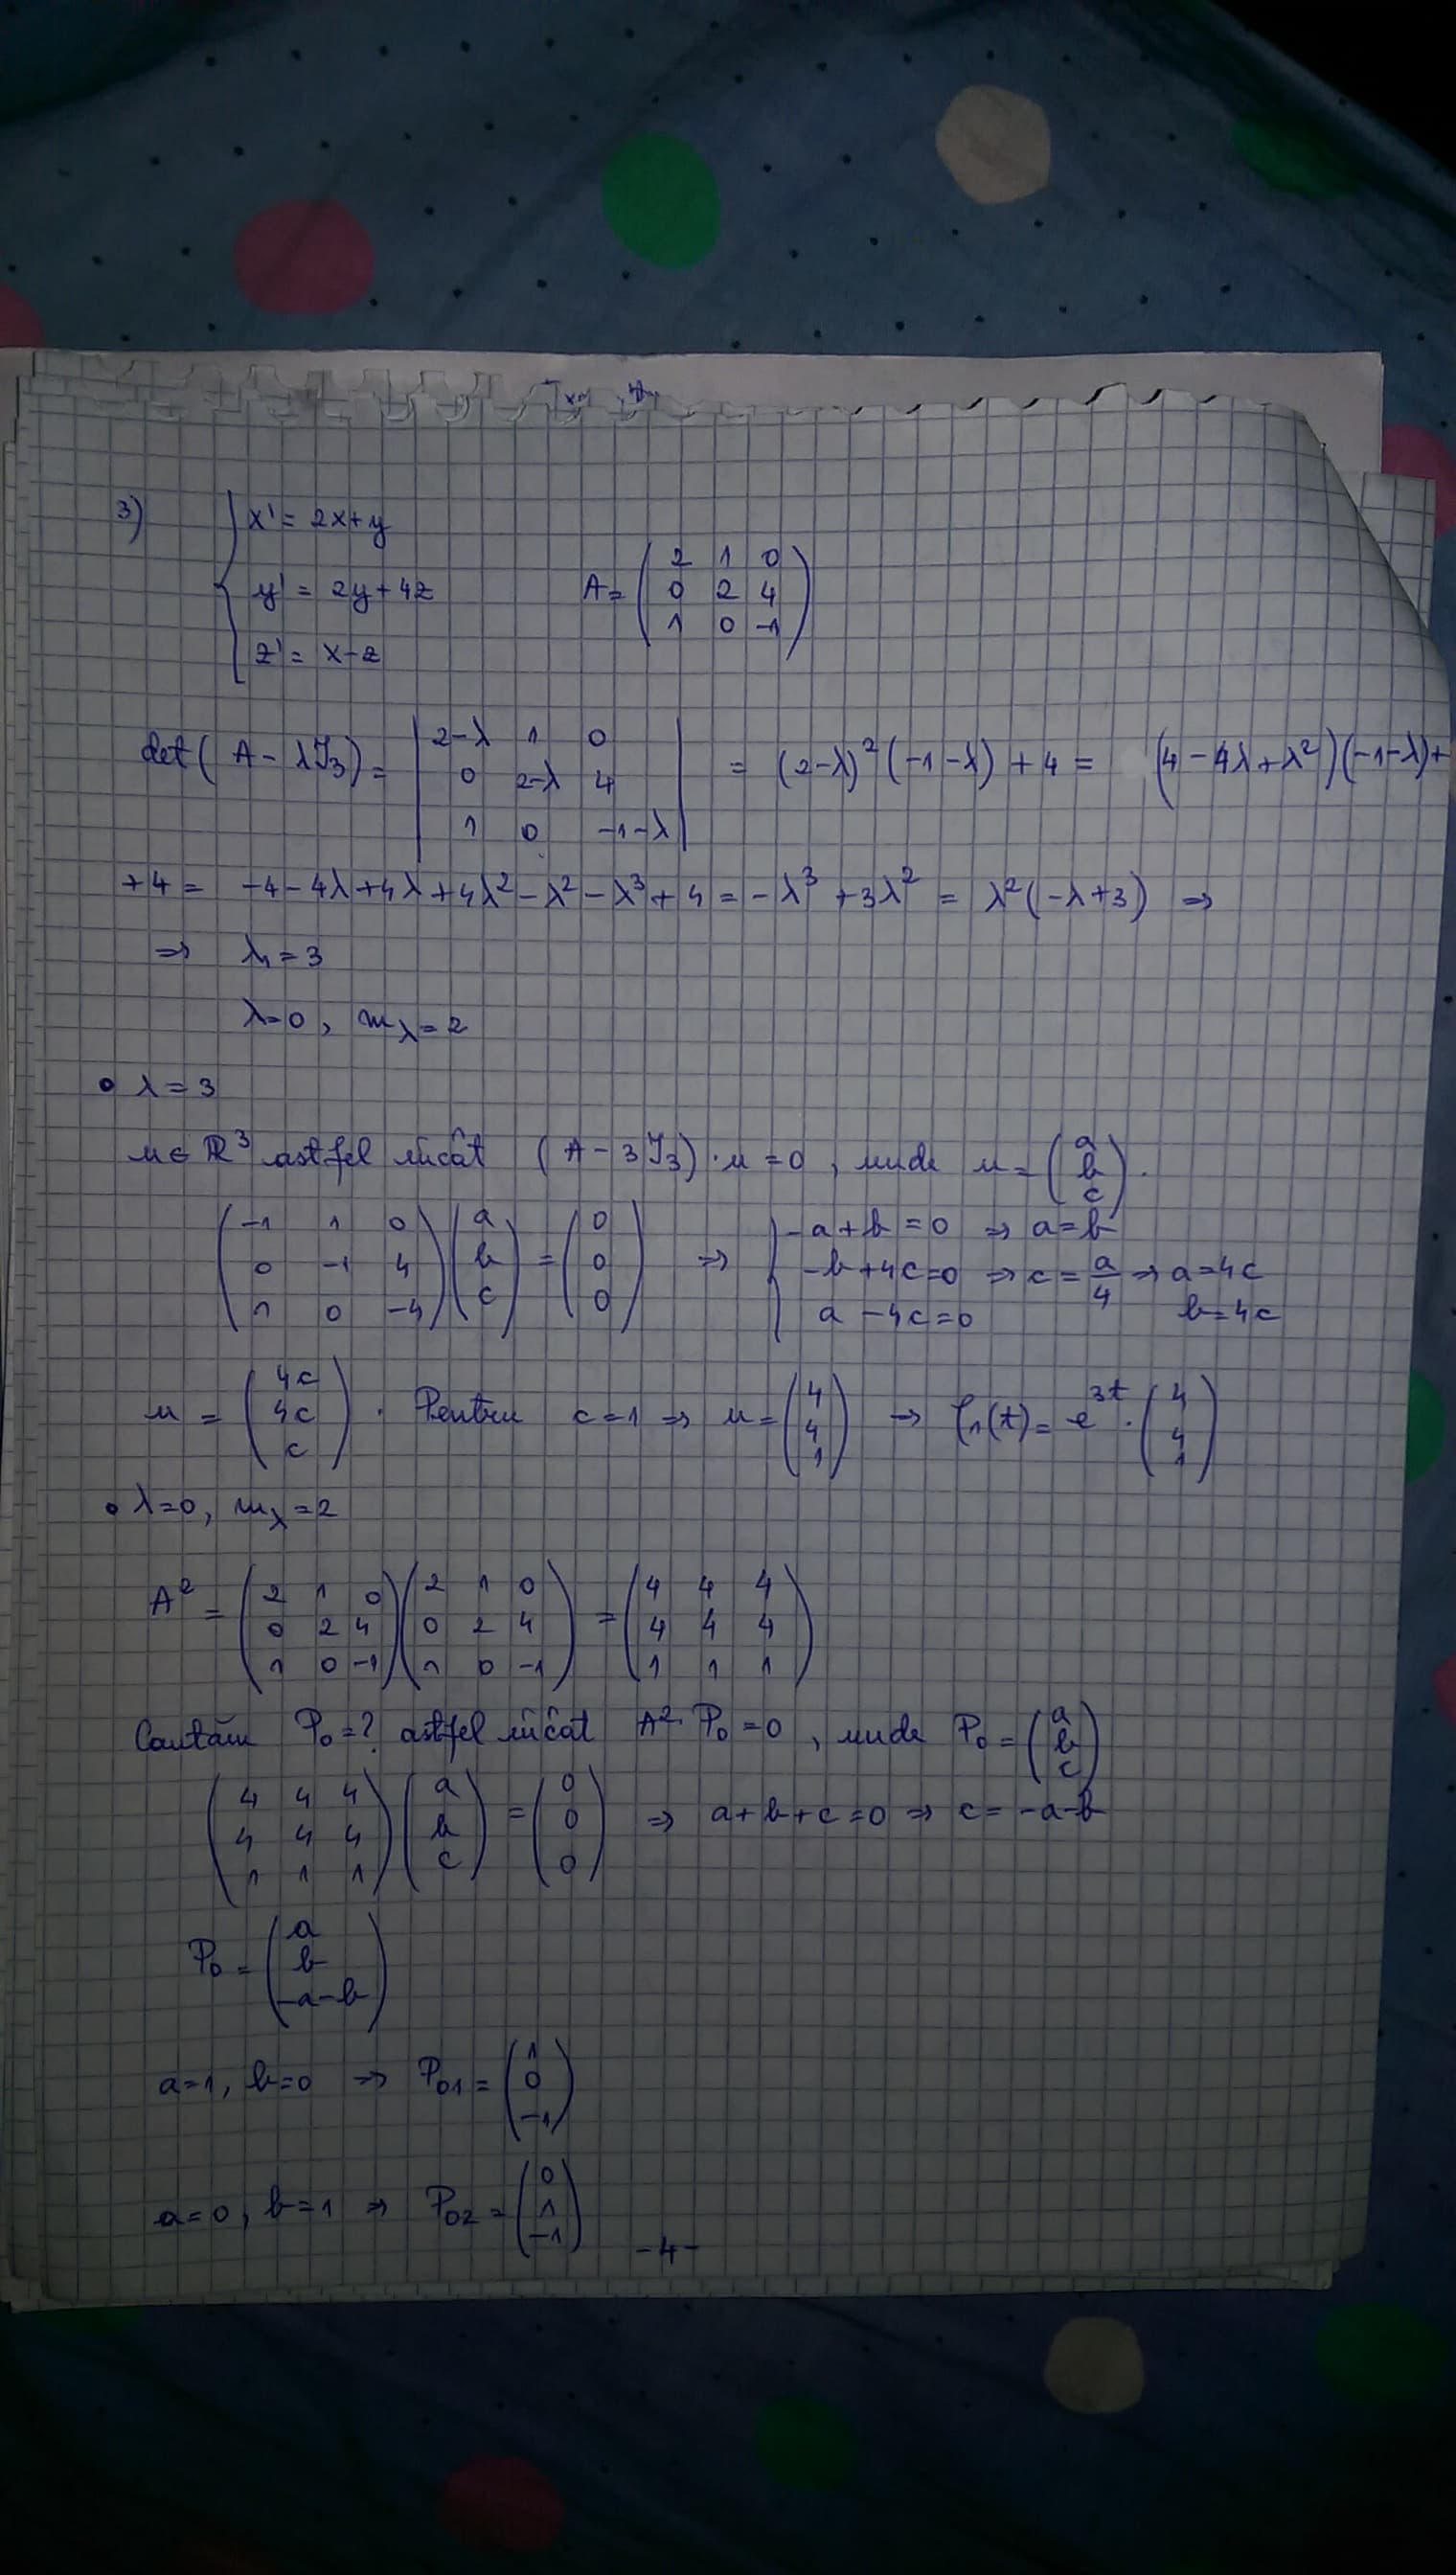 3) { x' = 2x+y
y' = 2y+4z
z' = x-z
A = ( 2 1 0
0 2 4
1 0 -1 )
det( A - λI₃) = | 2-λ 1 0
0 2-λ 4
1 0 -1-λ | = (2-λ)²(-1-λ) + 4 = (4 - 4λ + λ²)(-1-λ)+
+4 = -4-4λ+4λ+4λ²-λ²-λ³+4 = -λ³+3λ² = λ²(-λ+3) ⇒
⇒ λ₁ = 3
λ=0, m_λ = 2
• λ = 3
u ∈ ℝ³ astfel încât (A - 3I₃)·u = 0, unde u = ( a
b
c ).
( -1 1 0
0 -1 4
1 0 -4 ) ( a
b
c ) = ( 0
0
0 ) ⇒ { -a+b = 0 ⇒ a = b
-b+4c=0 ⇒ c = a/4 ⇒ a=4c
a - 4c = 0 b=4c
u = ( 4c
4c
c ). Pentru c=1 ⇒ u = ( 4
4
1 ) ⇒ φ₁(t) = e^{3t} · ( 4
4
1 )
• λ=0, m_λ = 2
A² = ( 2 1 0
0 2 4
1 0 -1 ) ( 2 1 0
0 2 4
1 0 -1 ) = ( 4 4 4
4 4 4
1 1 1 )
Căutăm P₀ = ? astfel încât A²·P₀ = 0, unde P₀ = ( a
b
c )
( 4 4 4
4 4 4
1 1 1 ) ( a
b
c ) = ( 0
0
0 ) ⇒ a+b+c=0 ⇒ c = -a-b
P₀ = ( a
b
-a-b )
a=1, b=0 ⇒ P₀₁ = ( 1
0
-1 )
a=0, b=1 ⇒ P₀₂ = ( 0
1
-1 )
-4-